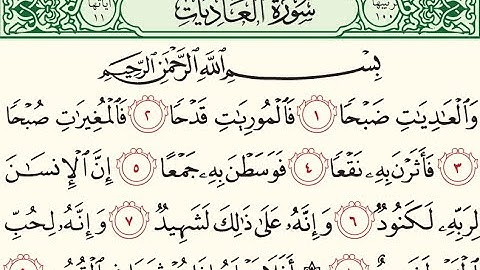 ترتيبها ١٠٠ سورة العاديات آياتها ١١
بِسْمِ اللَّهِ الرَّحْمَٰنِ الرَّحِيمِ
وَالْعَادِيَاتِ ضَبْحًا ١ فَالْمُورِيَاتِ قَدْحًا ٢ فَالْمُغِيرَاتِ صُبْحًا
٣ فَأَثَرْنَ بِهِ نَقْعًا ٤ فَوَسَطْنَ بِهِ جَمْعًا ٥ إِنَّ الْإِنسَانَ
لِرَبِّهِ لَكَنُودٌ ٦ وَإِنَّهُ عَلَىٰ ذَٰلِكَ لَشَهِيدٌ ٧ وَإِنَّهُ لِحُبِّ